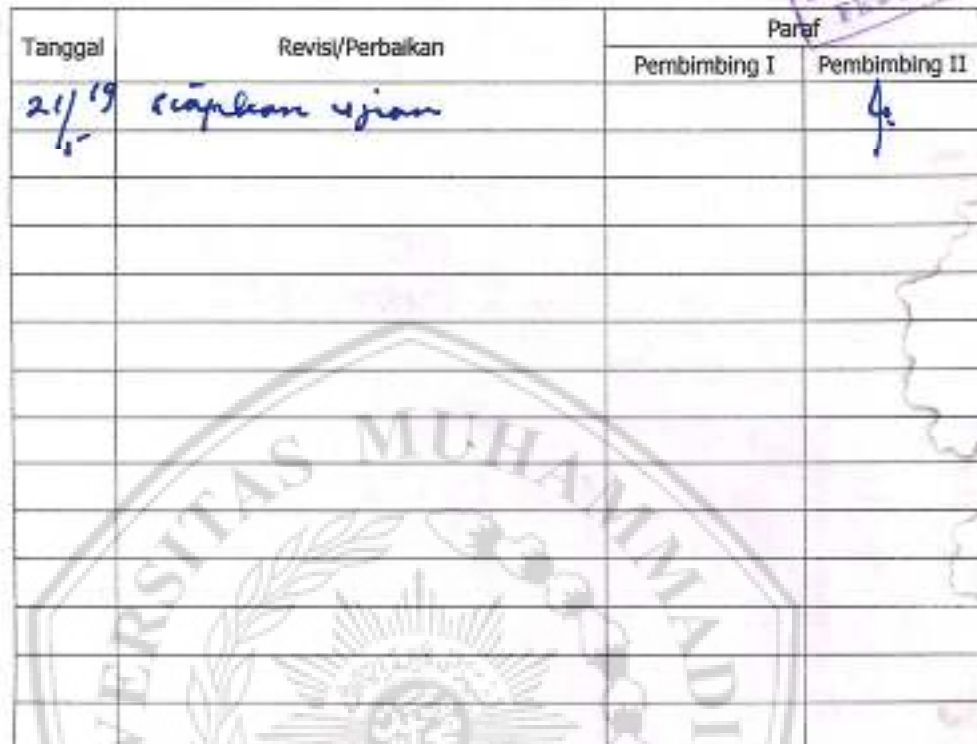 Tanggal Revisi/Perbaikan Paraf
Pembimbing I Pembimbing II
21/5 19 siapkan ujian
VERSITAS MUHAMMADI